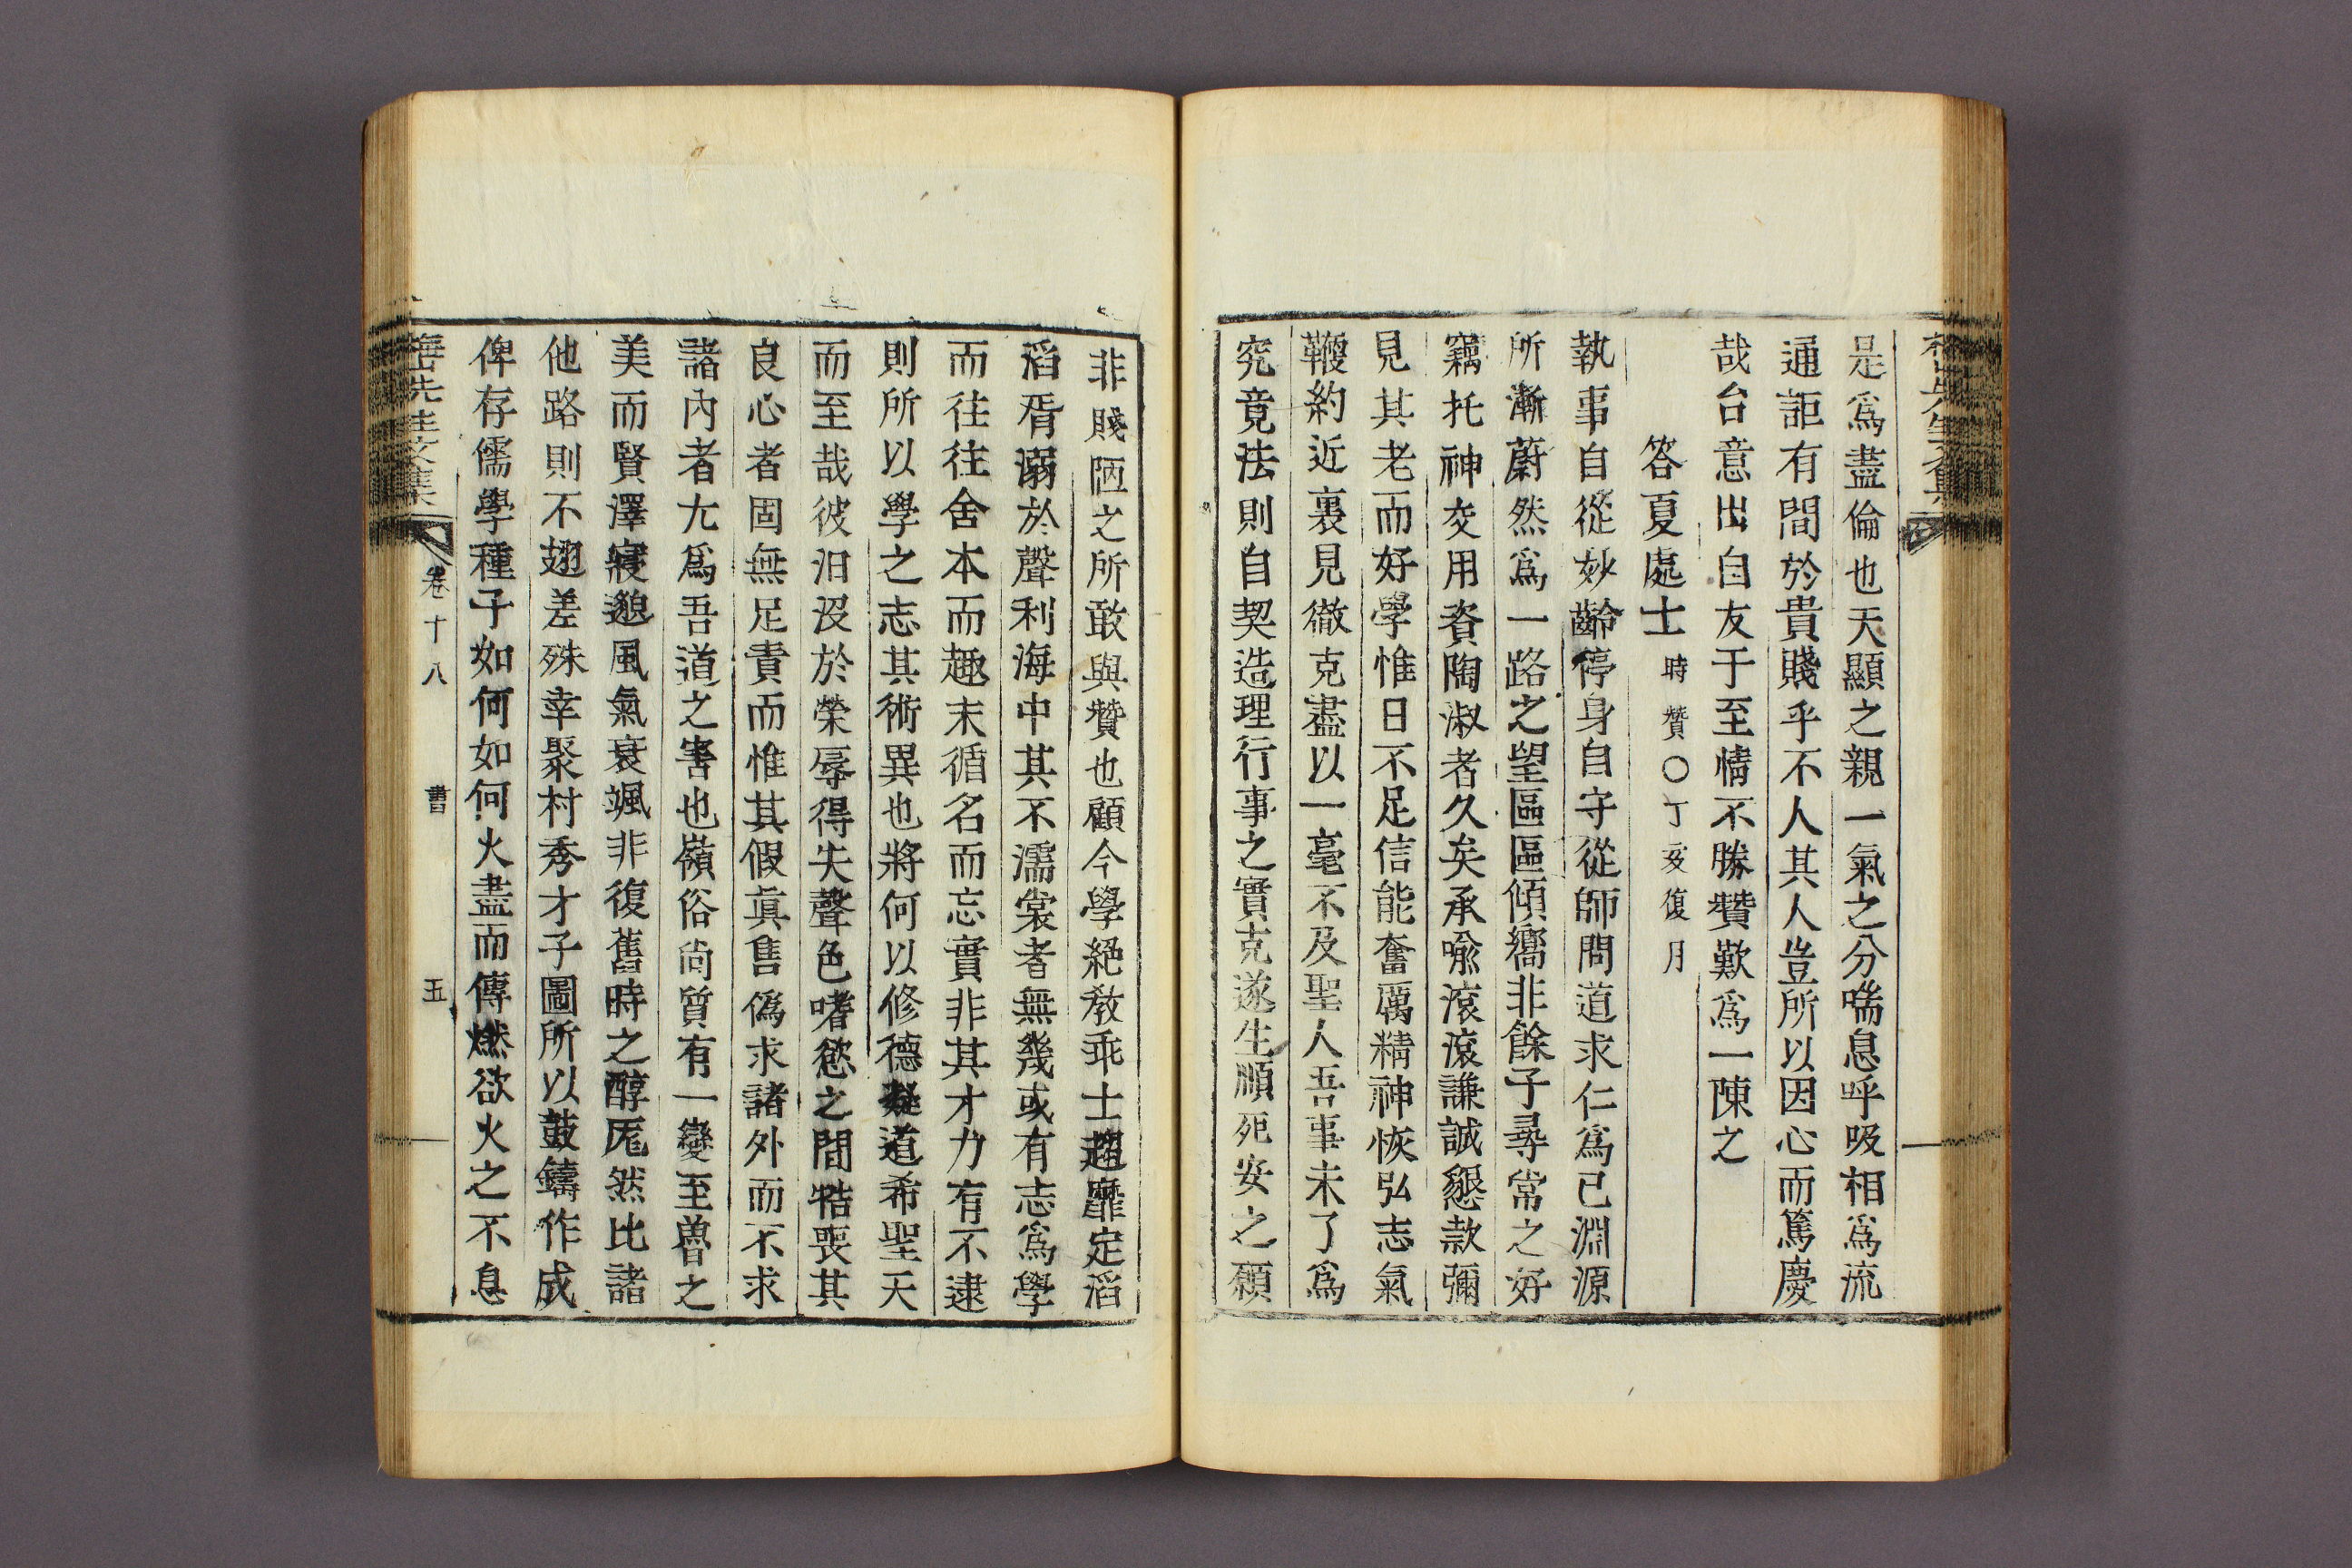 是爲盡倫也天顯之親一氣之分喘息呼吸相爲流
通詎有間於貴賤乎不人其人豈所以因心而篤慶
哉台意出自友于至情不勝贊歎爲一陳之
答夏處士時贊○丁亥復月
執事自從妙齡停身自守從師問道求仁爲己淵源
所漸蔚然爲一路之望區區傾嚮非餘子尋常之好
竊托神交用資陶淑者久矣承喩滾滾謙誠懇款彌
見其老而好學惟日不足信能奮厲精神恢弘志氣
鞭約近裏見徹克盡以一毫不及聖人吾事未了爲
究竟法則自契造理行事之實克遂生順死安之願
非賤陋之所敢與贊也顧今學絶敎乖士趨靡定滔
滔胥溺於聲利海中其不濡裳者無幾或有志爲學
而往往舍本而趣末循名而忘實非其才力有不逮
則所以學之志其術異也將何以修德凝道希聖天
而至哉彼汨沒於榮辱得失聲色嗜慾之間牿喪其
良心者固無足責而惟其假眞售僞求諸外而不求
諸內者尤爲吾道之害也嶺俗尙質有一變至魯之
美而賢澤寢邈風氣衰颯非復舊時之醇厖然比諸
他路則不翅差殊幸聚村秀才子圖所以鼓鑄作成
俾存儒學種子如何如何火盡而傳燃欲火之不息
先生文集 卷十八 書 五